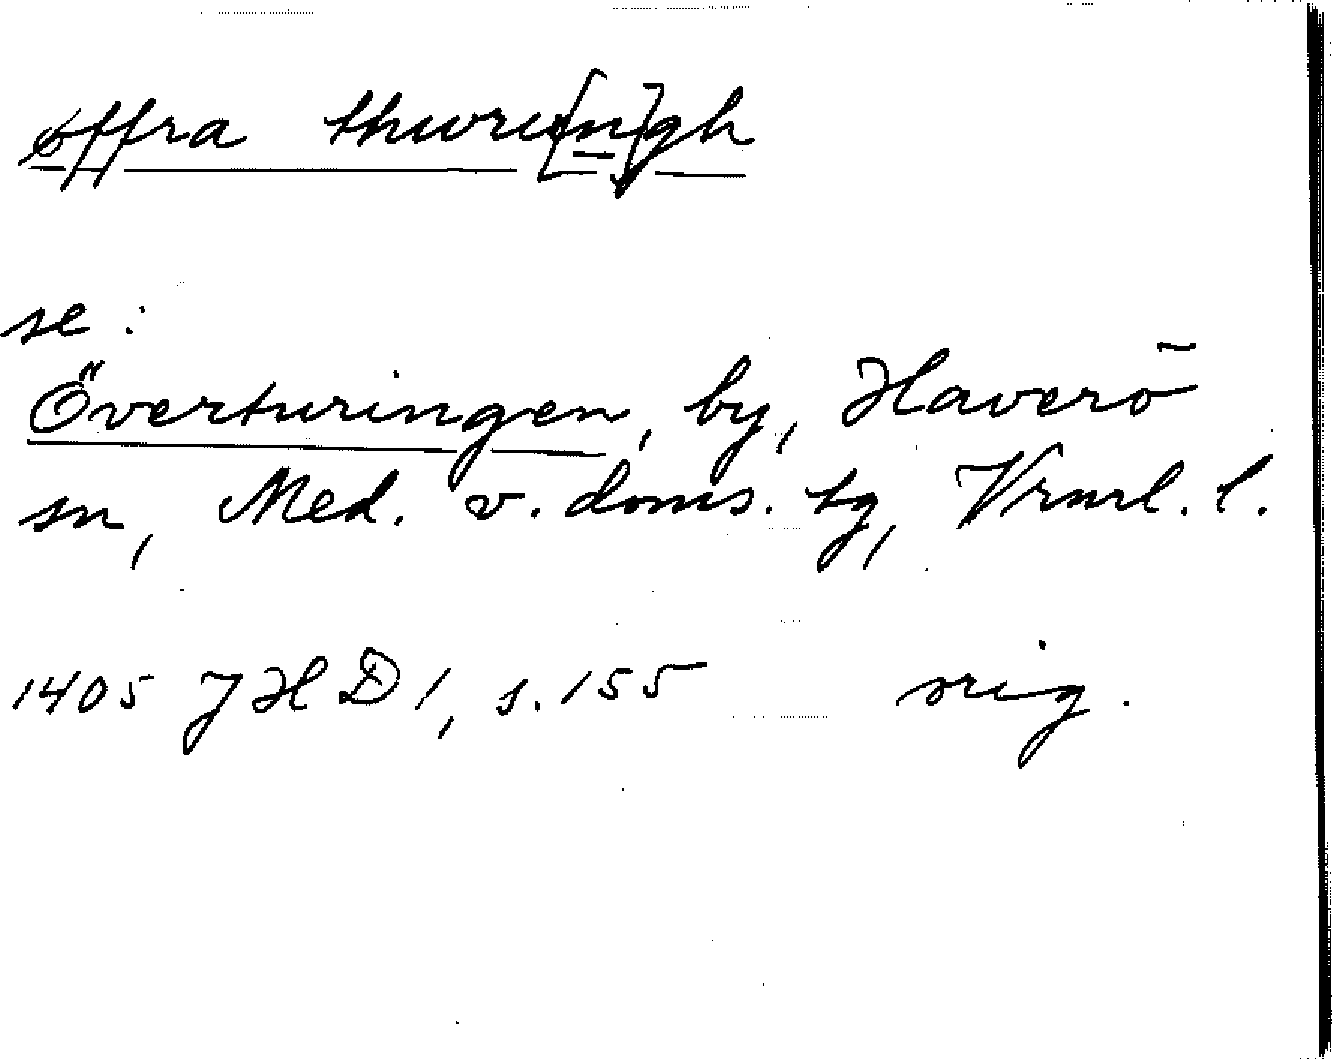 øffra thuri[n]gh
se:
Överturingen, by, Haverö
sn, Med. v. doms. tg, Vrnrl. l.
1405 JHD 1, s. 155 orig.